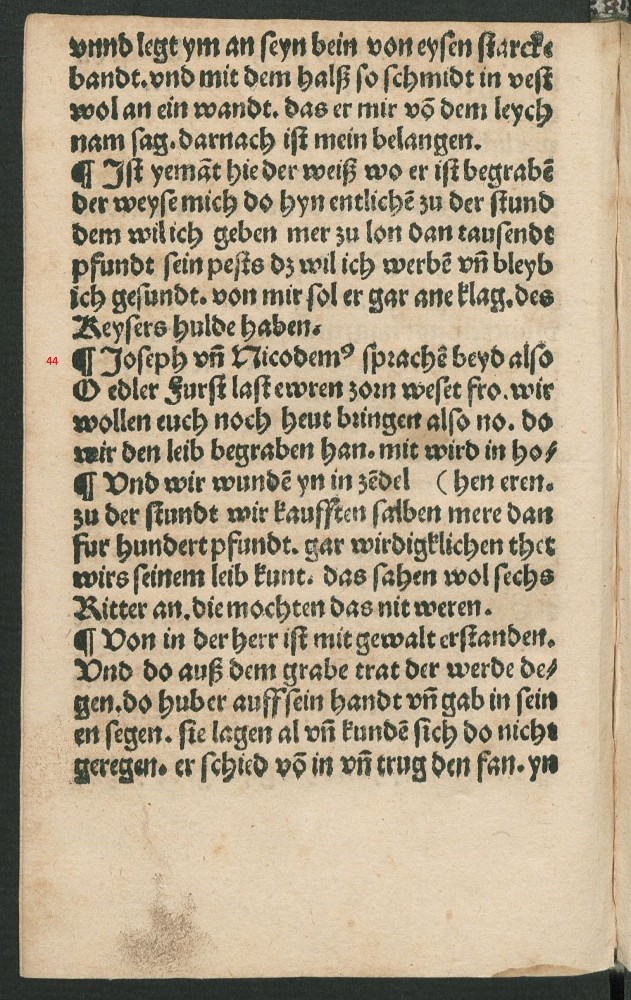 vnnd legt ym an seyn bein von eysen starcke
bandt. vnd mit dem halß so schmidt in vest
wol an ein wandt. das er mir võ dem leych
nam sag. darnach ist mein belangen.
¶ Ist yemãt hie der weiß wo er ist begrabẽ
der weyse mich do hyn entlichẽ zu der stund
dem wil ich geben mer zu lon dan tausendt
pfundt sein pests dz wil ich werbẽ vñ bleyb
ich gesundt. von mir sol er gar ane klag. des
Keysers hulde haben.
44 ¶ Joseph vñ Nicodemꝰ sprachẽ beyd also
O edler Furst last ewren zorn weset fro. wir
wollen euch noch heut bringen also no. do
wir den leib begraben han. mit wird in ho⸗
¶ Vnd wir wundẽ yn in zẽdel ( hen eren.
zu der stundt wir kaufften salben mere dan
fur hundert pfundt. gar wirdigklichen thet
wirs seinem leib kunt. das sahen wol sechs
Ritter an. die mochten das nit weren.
¶ Von in der herr ist mit gewalt erstanden.
Vnd do auß dem grabe trat der werde de⸗
gen. do hub er auff sein handt vñ gab in sein
en segen. sie lagen al vñ kundẽ sich do nicht
geregen. er schied võ in vñ trug den fan. yn